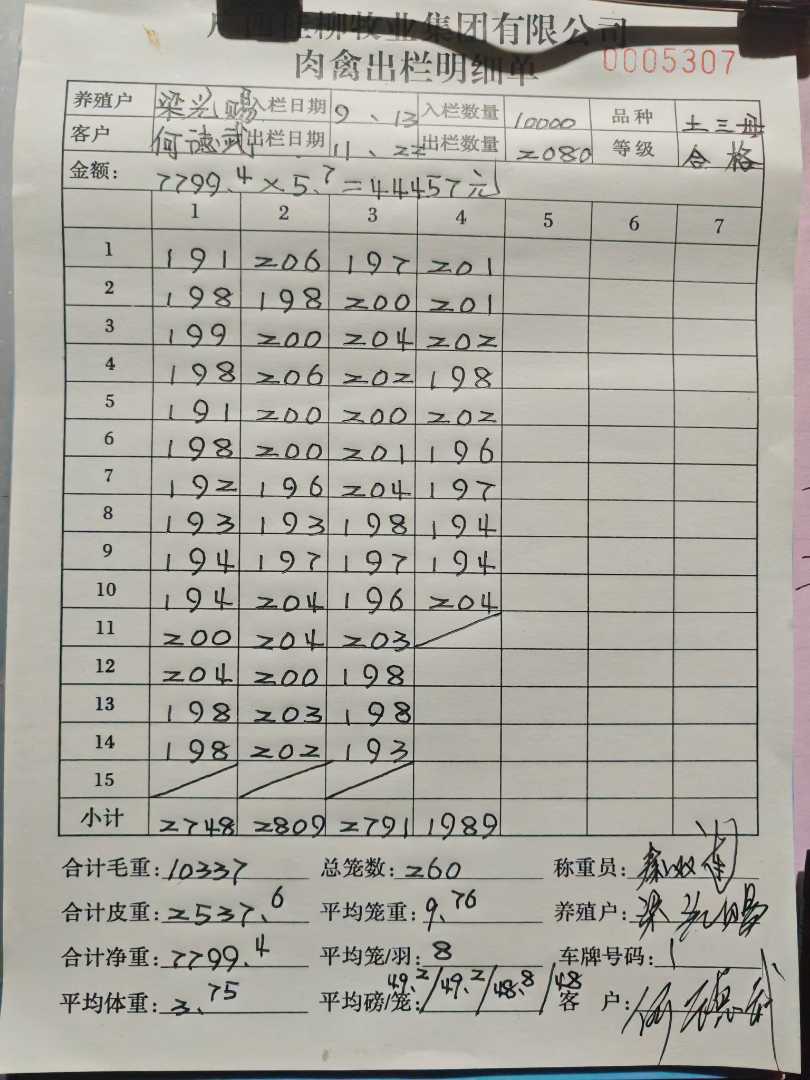 牧业集团有限公司
肉禽出栏明细单 0005307
养殖户 梁光赐 入栏日期 9、13 入栏数量 10000 品种 土三
客户 何德武 出栏日期 11、22 出栏数量 2080 等级 合格
金额: 7799.4×5.7=44457元
1 2 3 4 5 6 7
1 191 206 197 201
2 198 198 200 201
3 199 200 204 202
4 198 206 202 198
5 191 200 200 202
6 198 200 201 196
7 192 196 204 197
8 193 193 198 194
9 194 197 197 194
10 194 204 196 204
11 200 204 203
12 204 200 198
13 198 203 198
14 198 202 193
15
小计 2748 2809 2791 1989
合计毛重: 10337 总笼数: 260 称重员:
合计皮重: 2537.6 平均笼重: 9.76 养殖户:
合计净重: 7799.4 平均笼/羽: 8 车牌号码: 1
平均体重: 3.75 平均磅/笼: 49.2/49.2/48.8/48 客 户: